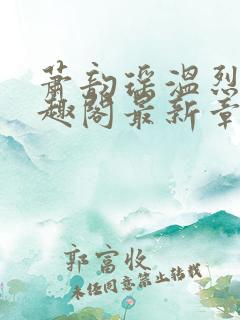 萧韵瑶温烈
趣阁最新章
郭富收
未经同意禁止转载